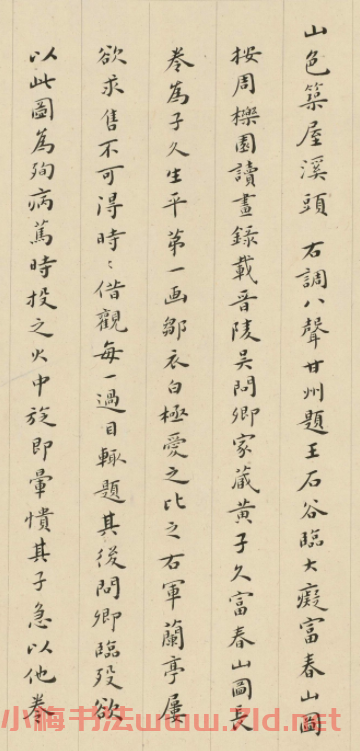 山色築屋溪頭 右調八聲甘州題王石谷臨大癡富春山圖
按周櫟園讀畫錄載晉陵吳問卿家蔵黃子久富春山圖長
卷為子久生平第一画鄒衣白極愛之比之右軍蘭亭屢
欲求售不可得時〻借觀每一過目輒題其後問卿臨歿欲
以此圖為殉病篤時投之火中旋即暈憒其子急以他卷
小梅书法www.7ld.net